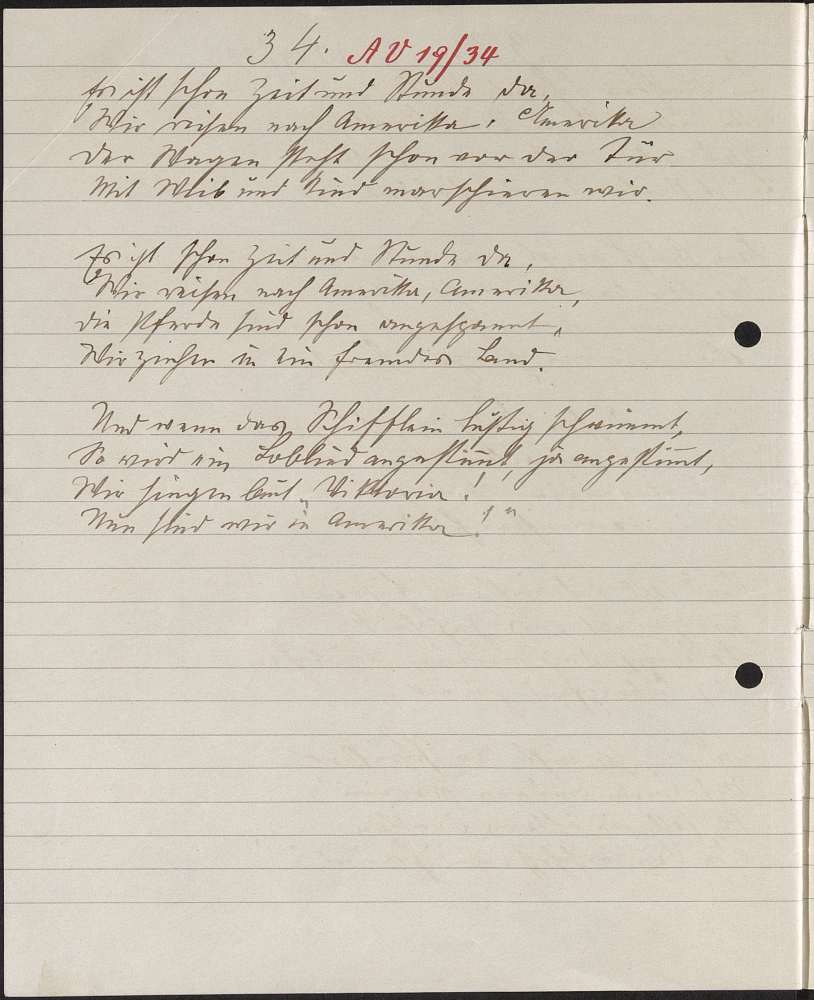 34. AV 19/34
Es ist schon Zeit und Stunde da,
Wir reisen nach Amerika, Amerika
Der Wagen steht schon vor der Tür
Mit Weib und Kind marschieren wir.
Es ist schon Zeit und Stunde da,
Wir reisen nach Amerika, Amerika,
Die Pferde sind schon angespannt,
Wir ziehen in ein fremdes Land.
Und wenn das Schifflein lustig schwimmt,
So wird ein Loblied angestimmt, ja angestimmt,
Wir singen laut „Viktoria!
Nun sind wir in Amerika!"